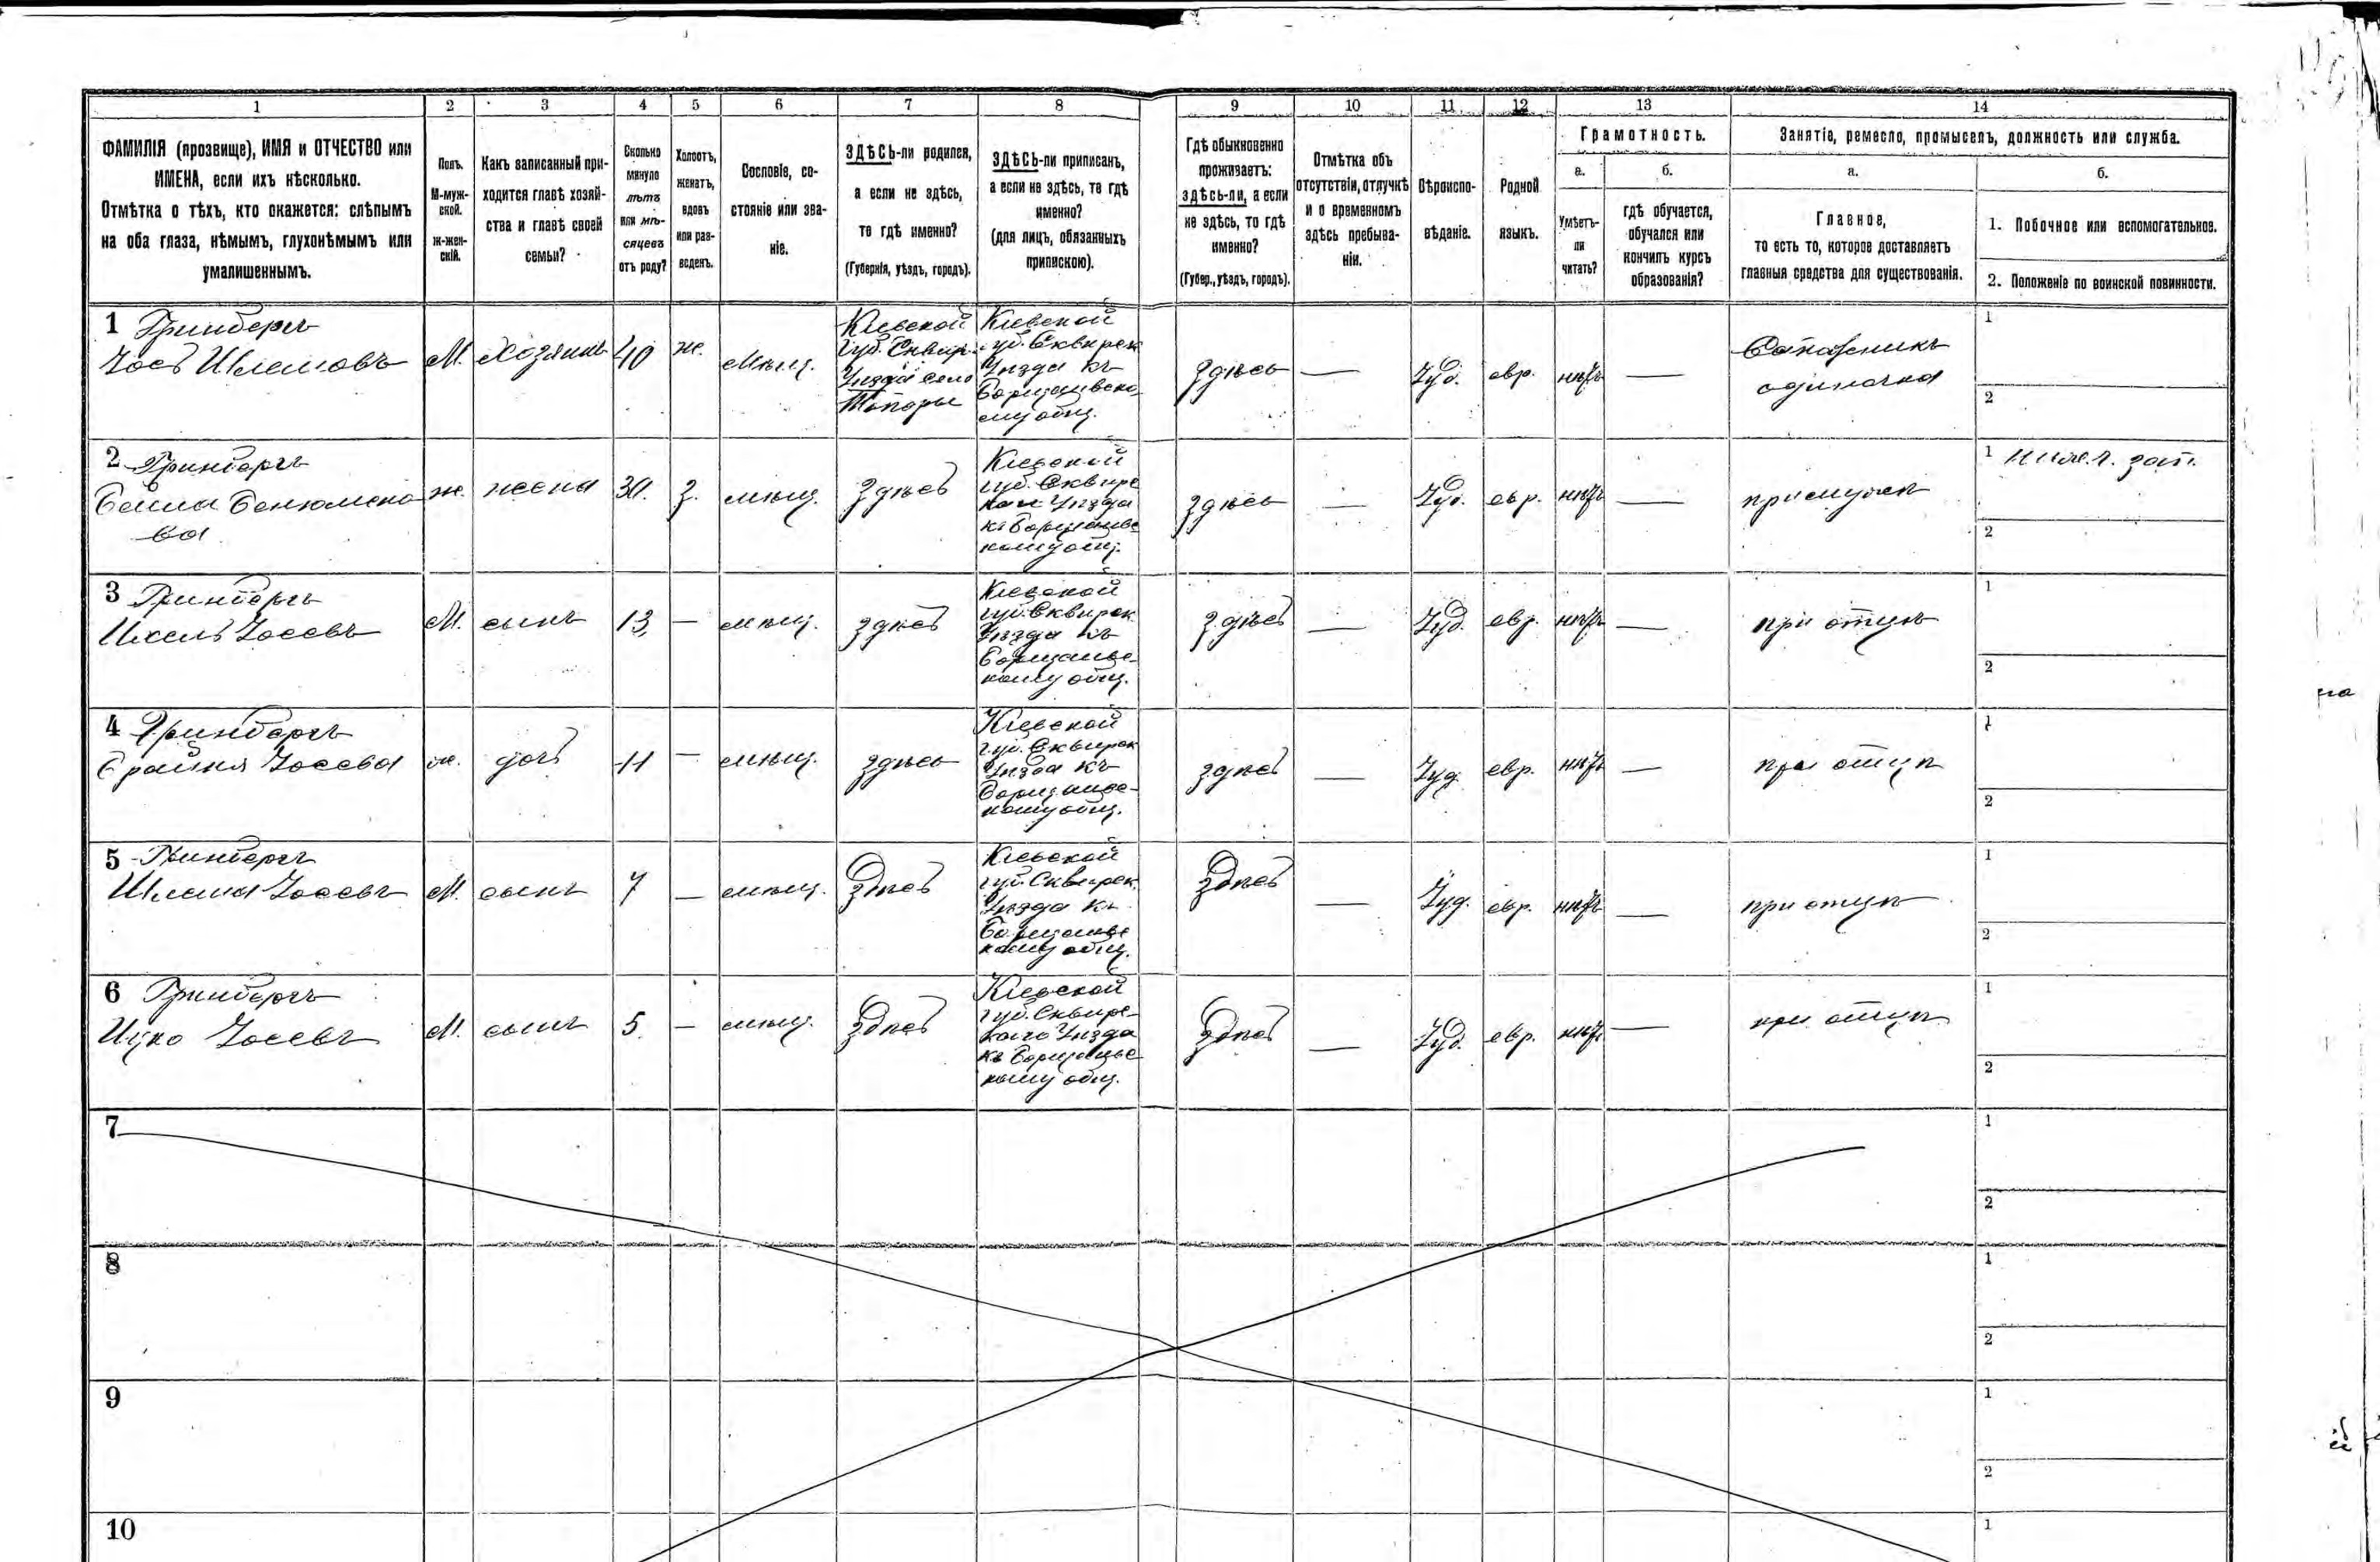 1 2 3 4 5 6 7 8 9 10 11 12 13 14
ФАМИЛІЯ (прозвище), ИМЯ и ОТЧЕСТВО или
ИМЕНА, если ихъ нѣсколько.
Отмѣтка о тѣхъ, кто окажется: слѣпымъ
на оба глаза, нѣмымъ, глухонѣмымъ или
умалишеннымъ.
Полъ.
М-муж-
ской.
ж-жен-
скій.
Какъ записанный при-
ходится главѣ хозяй-
ства и главѣ своей
семьи?
Сколько
минуло
лѣтъ
или мѣ-
сяцевъ
отъ роду?
Холостъ,
женатъ,
вдовъ
или раз-
веденъ.
Сословіе, со-
стояніе или зва-
ніе.
ЗДѢСЬ-ли родился,
а если не здѣсь,
то гдѣ именно?
(Губернія, уѣздъ, городъ).
ЗДѢСЬ-ли приписанъ,
а если не здѣсь, то гдѣ
именно?
(для лицъ, обязанныхъ
припискою).
Гдѣ обыкновенно
проживаетъ:
здѣсь-ли, а если
не здѣсь, то гдѣ
именно?
(Губер., уѣздъ, городъ).
Отмѣтка объ
отсутствіи, отлучкѣ
и о временномъ
здѣсь пребыва-
ніи.
Вѣроиспо-
вѣданіе.
Родной
языкъ.
Грамотность.
а.
Умѣетъ-
ли
читать?
б.
гдѣ обучается,
обучался или
кончилъ курсъ
образованія?
Занятіе, ремесло, промыселъ, должность или служба.
а.
Главное,
то есть то, которое доставляетъ
главныя средства для существованія.
б.
1. Побочное или вспомогательное.
2. Положеніе по воинской повинности.
1 Гринбергъ
Іось Шлемовъ
М.
Хозяинъ
40
ж.
Мѣщ.
Кіевской
губ. Сквир.
Уѣзда село
Топоры
Кіевской
губ. Сквирск
Уѣзда къ
Борщаивско
му общ.
здѣсь
—
Іуд.
евр.
нѣтъ
—
Сапожникъ
одиночка
1
2
2 Гринбергъ
Бейла Бенюмено
ва
ж.
жена
30.
з.
мѣщ.
здѣсь
Кіевской
губ. Сквирс
каго Уѣзда
къ Борщаивс
кому общ.
здѣсь
—
Іуд.
евр.
нѣтъ
—
при мужѣ
1
2
3 Гринбергъ
Ихель Іосевъ
М.
сынъ
13
—
мѣщ.
здѣсь
Кіевской
губ. Сквирск
Уѣзда къ
Борщаивс-
кому общ.
здѣсь
—
Іуд.
евр.
нѣтъ
—
при отцѣ
1
2
4 Гринбергъ
Брайна Іосева
ж.
дочь
11
—
мѣщ.
здѣсь
Кіевской
губ. Сквирск
Уѣзда къ
Борщаивс-
кому общ.
здѣсь
—
Іуд.
евр.
нѣтъ
—
при отцѣ
1
2
5 Гринбергъ
Шлема Іосевъ
М.
сынъ
7
—
мѣщ.
здѣсь
Кіевской
губ. Сквирск.
Уѣзда къ
Борщаивс
кому общ.
здѣсь
—
Іуд.
евр.
нѣтъ
—
при отцѣ
1
2
6 Гринбергъ
Ицко Іосевъ
М.
сынъ
5
—
мѣщ.
здѣсь
Кіевской
губ. Сквирс-
каго Уѣзда
къ Борщаивс
кому общ.
здѣсь
—
Іуд.
евр.
нѣтъ
—
при отцѣ
1
2
7
1
2
8
1
2
9
1
2
10
1